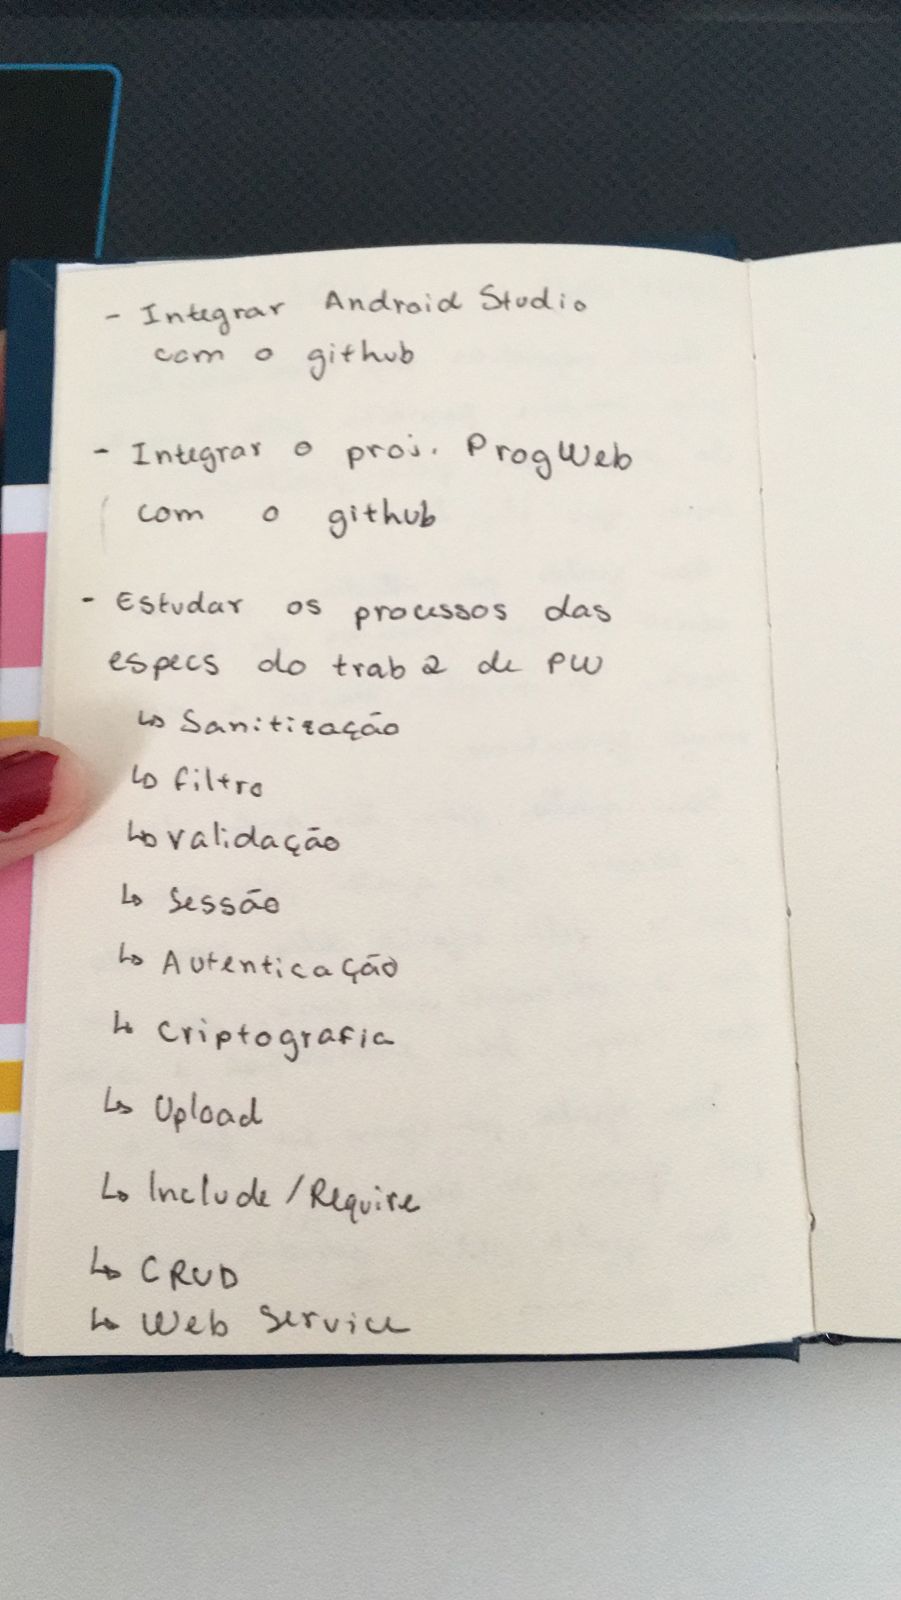 - Integrar Android Studio
com o github
- Integrar o proj. ProgWeb
com o github
- Estudar os processos das
especs do trab 2 de PW
↳ Sanitização
↳ filtro
↳ validação
↳ Sessão
↳ Autenticação
↳ criptografia
↳ Upload
↳ Include/Require
↳ CRUD
↳ Web Service